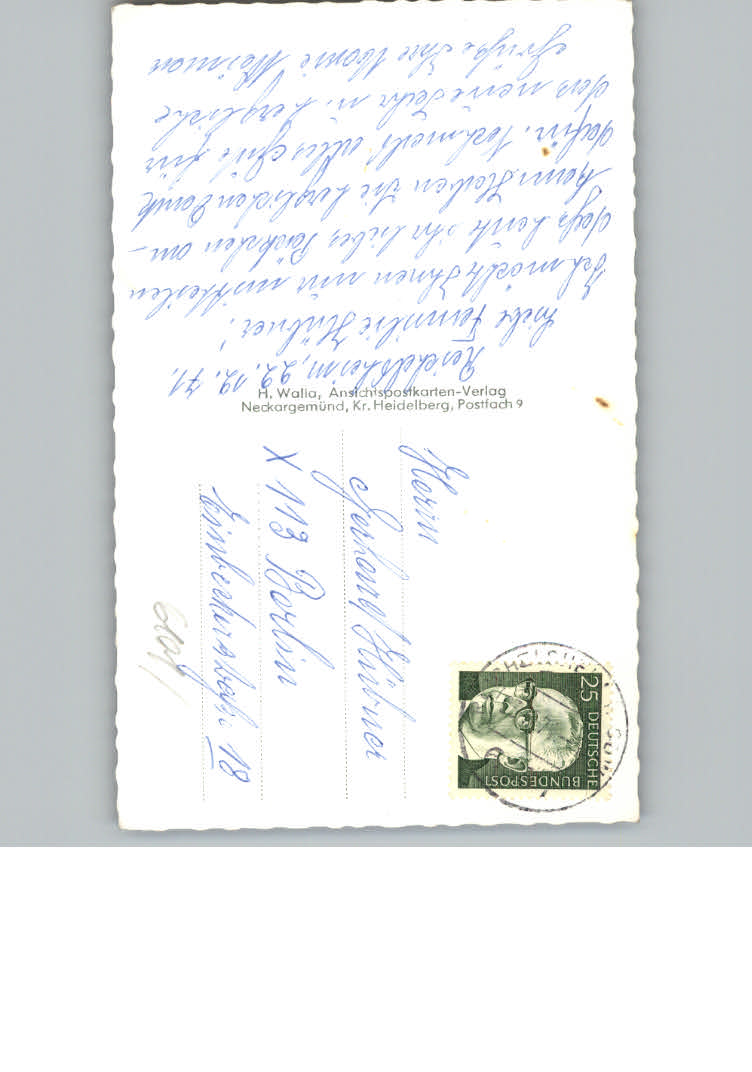 Reichelsheim, 22.12.71.
Liebe Familie Hübner!
Ich möchte Ihnen nur mitteilen
daß heute ihr liebes Päckchen an-
kam. Haben Sie herzlichen Dank
dafür. Nochmals alles Gute für
das neue Jahr u. herzliche
Grüße Ihre
H. Walla, Ansichtspostkarten-Verlag
Neckargemünd, Kr. Heidelberg, Postfach 9
Herrn
Gerhard Hübner
X 113 Berlin
18
25 DEUTSCHE
BUNDESPOST